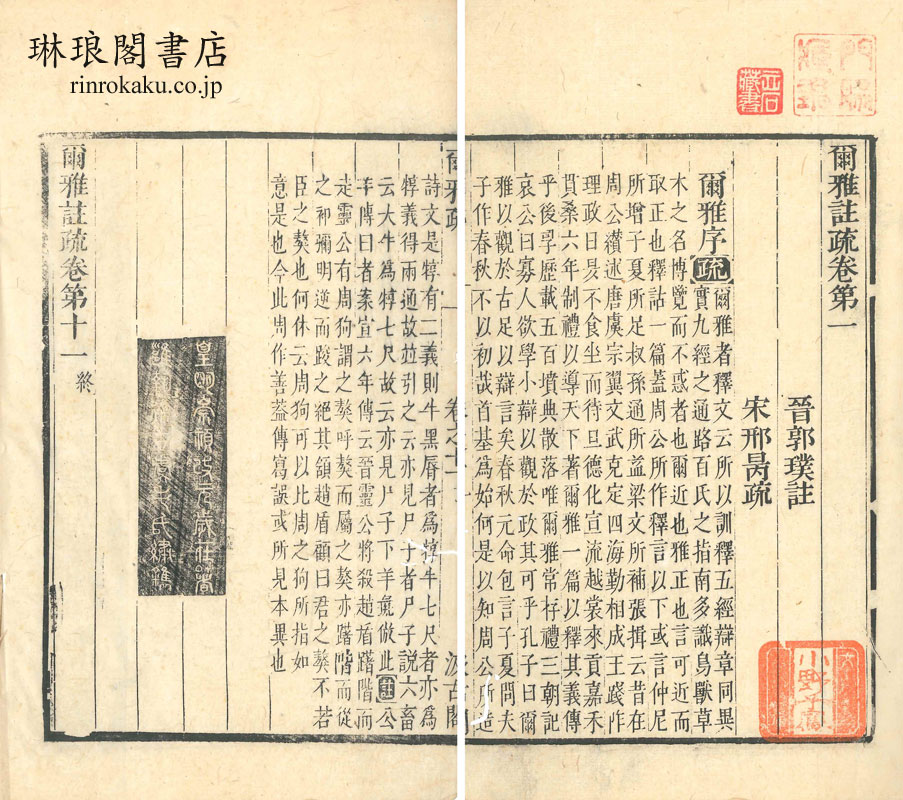 琳琅閣書店
rinrokaku.co.jp
爾雅註疏卷第一
晉郭璞註
宋邢昺疏
爾雅序 疏 爾雅者釋文云所以訓釋五經辯章同異
實九經之通路百氏之指南多識鳥獸草
木之名博覽而不惑者也爾近也雅正也言可近而
取正也釋詁一篇蓋周公所作釋言以下或言仲尼
所增子夏所足叔孫通所益梁文所補張揖云昔在
周公纘述唐虞宗翼文武克定四海勤相成王踐阼
理政日昃不食坐而待旦德化宣流越裳來貢嘉禾
貫桑六年制禮以導天下著爾雅一篇以釋其義傳
乎後孠歷載五百墳典散落唯爾雅常存禮三朝記
哀公曰寡人欲學小辯以觀於政其可乎孔子曰爾
雅以觀於古足以辯言矣春秋元命包言子夏問夫
子作春秋不以初哉首基爲始何是以知周公所造
爾雅疏 卷之十一 汲古閣
詩文是犉有二義則牛黑脣者爲犉牛七尺者亦爲
犉義得兩通故並引之云亦見尸子者尸子說六畜
云大牛爲犉七尺故云亦見尸子下羊彘倣此 註 公
羊傳曰者案宣六年傳云晉靈公將殺趙盾躇階而
走靈公有周狗謂之獒呼獒而屬之獒亦躇階而從
之祁彌明逆而踆之絕其頷趙盾顧曰君之獒不若
臣之獒也何休云周狗可以比周之狗所指如
意是也今此周作善葢傳寫誤或所見本異也
皇明崇禎改元歲在著
雍執徐古虞毛氏繡鐫
爾雅註疏卷第十一 終
立石
藏書
小野